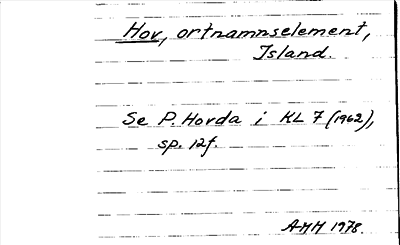 Hov, ortnamnselement,
Island.
Se P. Hovda i KL 7 (1962),
sp. 12f.
AMH 1978.